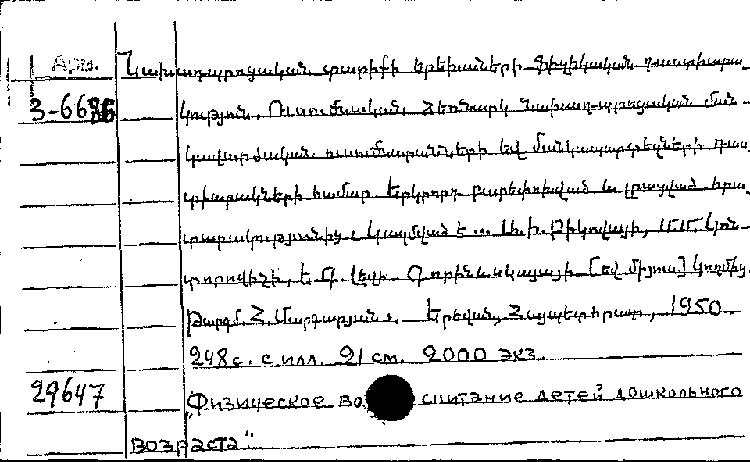 Арм. Նախադպրոցական տարիքի երեխաների ֆիզիկական դաստիարա-
3-6686 կություն. Ուսումնական ձեռնարկ նախադպրոցական ման-
կավարժական ուսումնարանների եվ մանկապարտեզների դաս
տիարակների համար երկրորդ բարեփոխված և լրացված հրա
տարակությունից: Կազմված է ... Ա. Ի. Բիկովայի, Մ. Մ. Կոն-
տորովիչի, Ե. Գ. Լեվի- [եվ մյուս] կողմից
Թարգմ. Հ. Մարգարյան: Երեվան, Հայպետհրատ, 1950.
248 с. с илл. 21 см. 2000 экз.
29647 "Физическое воспитание детей дошкольного
возраста"